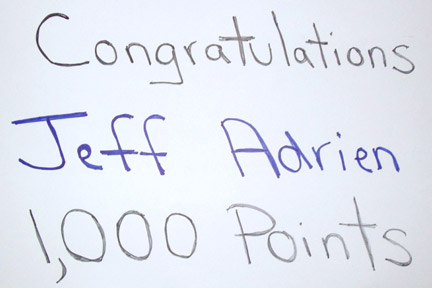 Congratulations
Jeff Adrien
1,000 Points